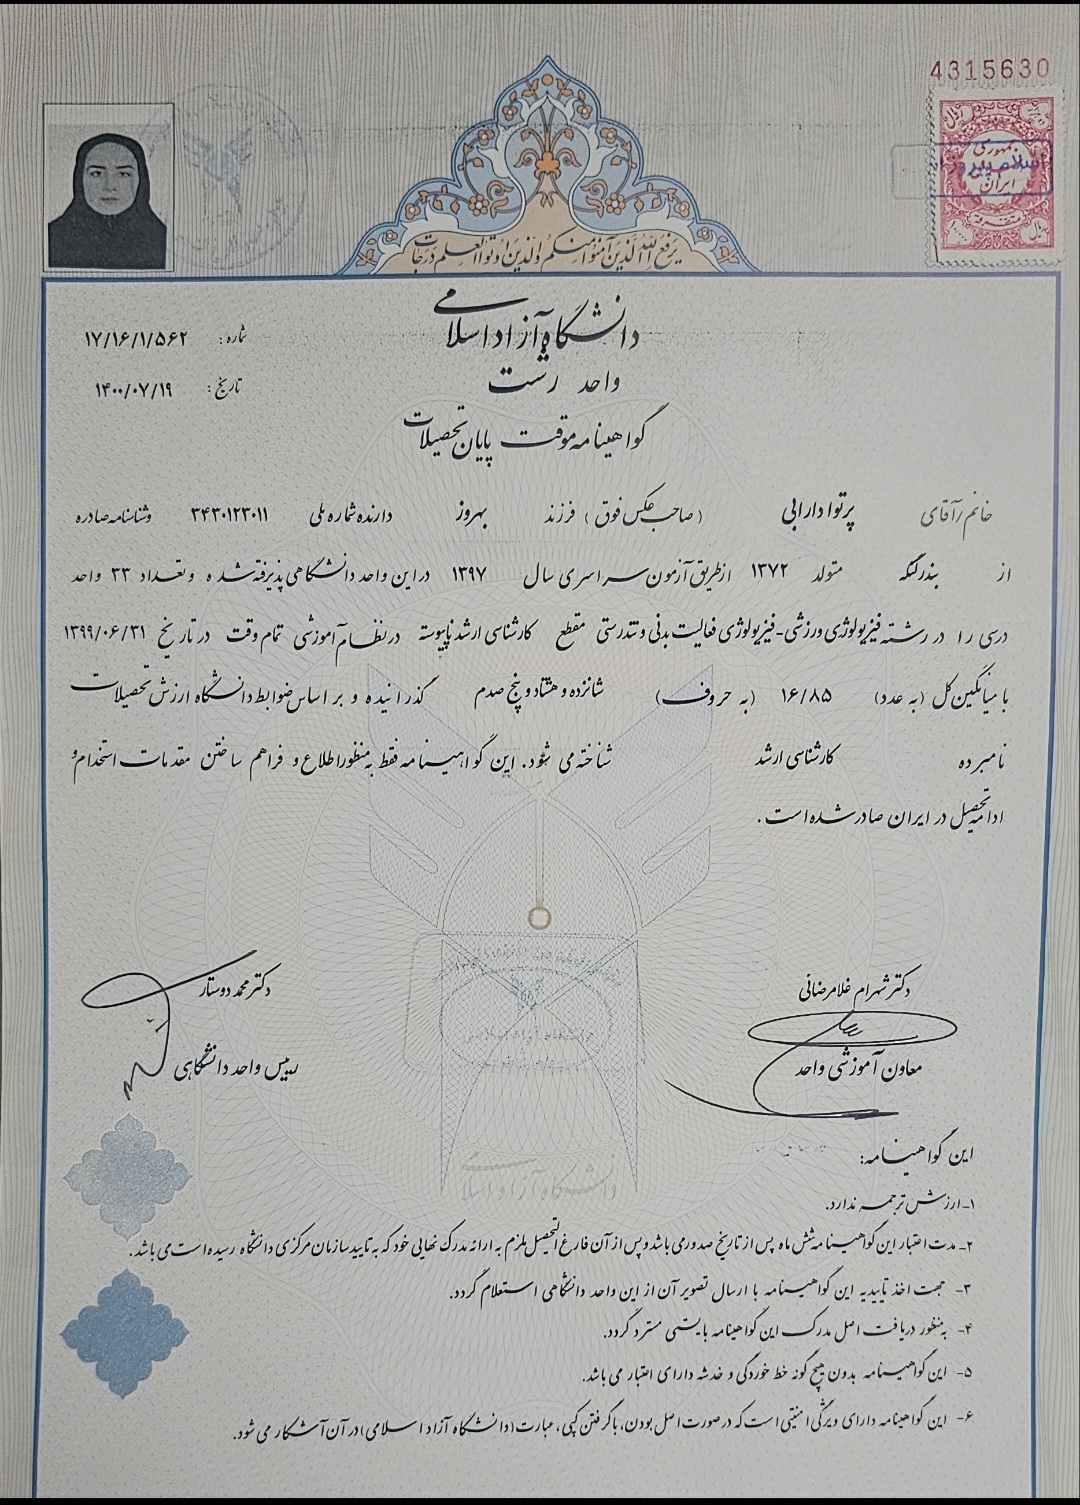 4315630
جمهوری
اسلام پیروز
ایران
متفرقه
ریال
یرفع الله الذین آمنوا منکم والذین اوتوا العلم درجات
دانشگاه آزاد اسلامی
واحد رشت
شماره: ۱۷/۱۶/۱/۵۶۲
تاریخ: ۱۴۰۰/۰۷/۱۹
گواهینامه موقت پایان تحصیلات
خانم/آقای پرتو دارابی (صاحب عکس فوق) فرزند بهروز دارنده شماره ملی ۳۴۳۰۱۲۳۰۱۱ وشناسنامه صادره
از بندرلنگه متولد ۱۳۷۲ ازطریق آزمون سراسری سال ۱۳۹۷ دراین واحد دانشگاهی پذیرفته شده وتعداد ۳۳ واحد
درسی را در رشته فیزیولوژی ورزشی-فیزیولوژی فعالیت بدنی و تندرستی مقطع کارشناسی ارشد ناپیوسته درنظام آموزشی تمام وقت در تاریخ ۱۳۹۹/۰۶/۳۱
با میانگین کل (به عدد) ۱۶/۸۵ (به حروف) شانزده و هشتاد و پنج صدم گذرانیده و بر اساس ضوابط دانشگاه ارزش تحصیلات
نامبرده کارشناسی ارشد شناخته می شود. این گواهینامه فقط به منظور اطلاع و فراهم ساختن مقدمات استخدام و
ادامه تحصیل در ایران صادر شده است.
دکتر شهرام غلامرضائی
معاون آموزشی واحد
دکتر محمد دوستار
رییس واحد دانشگاهی
دانشگاه آزاد اسلامی
این گواهینامه:
۱-ارزش ترجمه ندارد.
۲- مدت اعتبار این گواهینامه شش ماه پس از تاریخ صدور می باشد و پس از آن فارغ التحصیل ملزم به ارائه مدرک نهایی خود که به تایید سازمان مرکزی دانشگاه رسیده است می باشد.
۳- جهت اخذ تاییدیه این گواهینامه با ارسال تصویر آن از این واحد دانشگاهی استعلام گردد.
۴- به منظور دریافت اصل مدرک این گواهینامه بایستی مسترد گردد.
۵- این گواهینامه بدون هیچ گونه خط خوردگی و خدشه دارای اعتبار می باشد.
۶- این گواهینامه دارای ویژگی امنیتی است که در صورت اصل بودن، با گرفتن کپی، عبارت (دانشگاه آزاد اسلامی) در آن آشکار می شود.